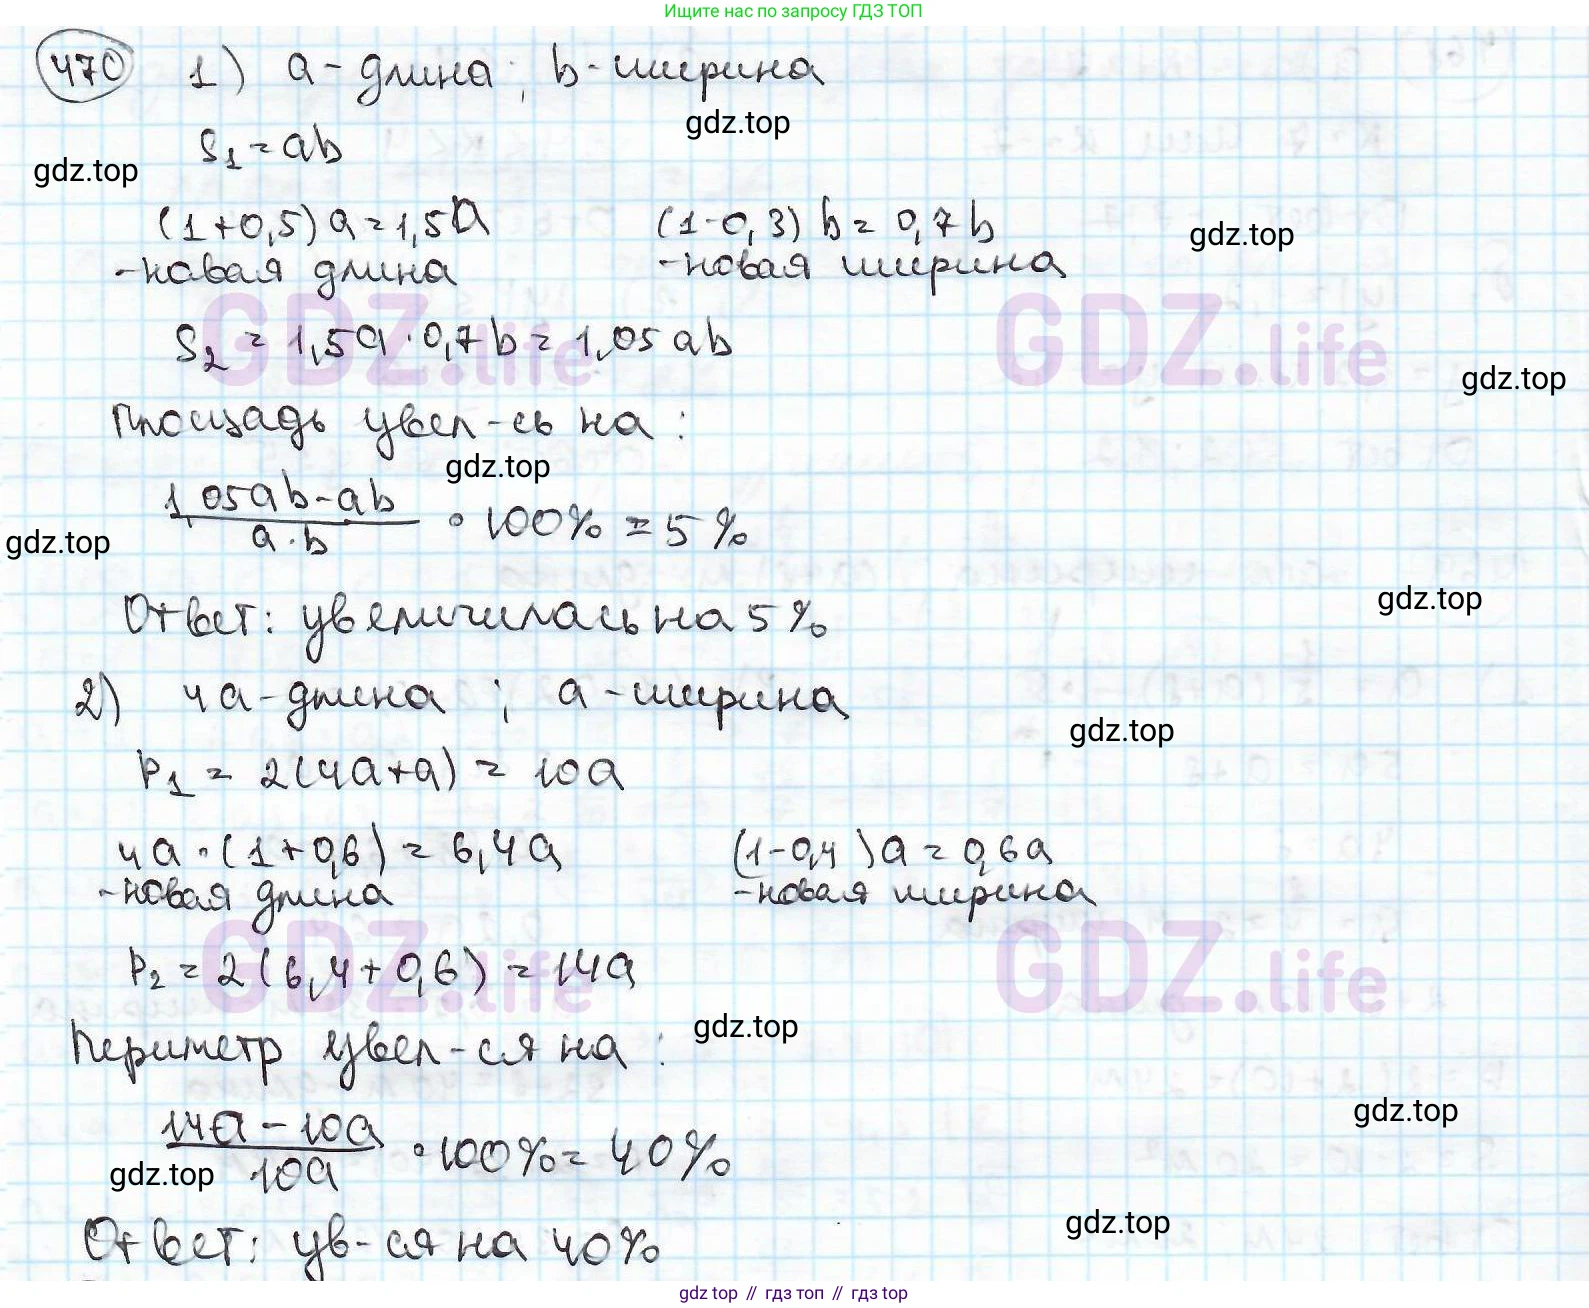 Ищите нас по запросу ГДЗ ТОП
470 1) a - длина ; b - ширина
gdz.top
S₁ = ab
gdz.top
(1+0,5) a = 1,5a (1-0,3) b = 0,7b
gdz.top
- новая длина - новая ширина
GDZ.life GDZ.life
S₂ = 1,5a · 0,7b = 1,05 ab
gdz.top
Площадь увел-сь на :
gdz.top
1,05ab - ab
a · b
· 100% = 5%
gdz.top
gdz.top
Ответ: увеличилась на 5%
2) 4a - длина ; a - ширина
gdz.top
P₁ = 2(4a+a) = 10a
4a · (1+0,6) = 6,4a (1-0,4)a = 0,6a
- новая длина - новая ширина
GDZ.life GDZ.life
P₂ = 2(6,4+0,6) = 14a
gdz.top
Периметр увел-ся на :
gdz.top
14a - 10a
10a
· 100% = 40%
gdz.top
gdz.top
Ответ: ув-ся на 40%
gdz top // гдз топ // гдз top